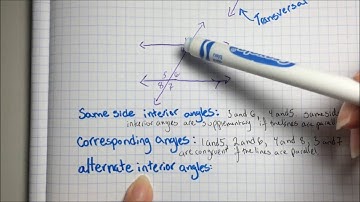 Transversal
5 6
8 7
Same side interior angles: 3 and 6, 4 and 5, same side
interior angles are supplementary if the lines are parallel
Corresponding angles: 1 and 5, 2 and 6, 4 and 8, 3 and 7
are congruent if the lines are parallel
alternate interior angles: